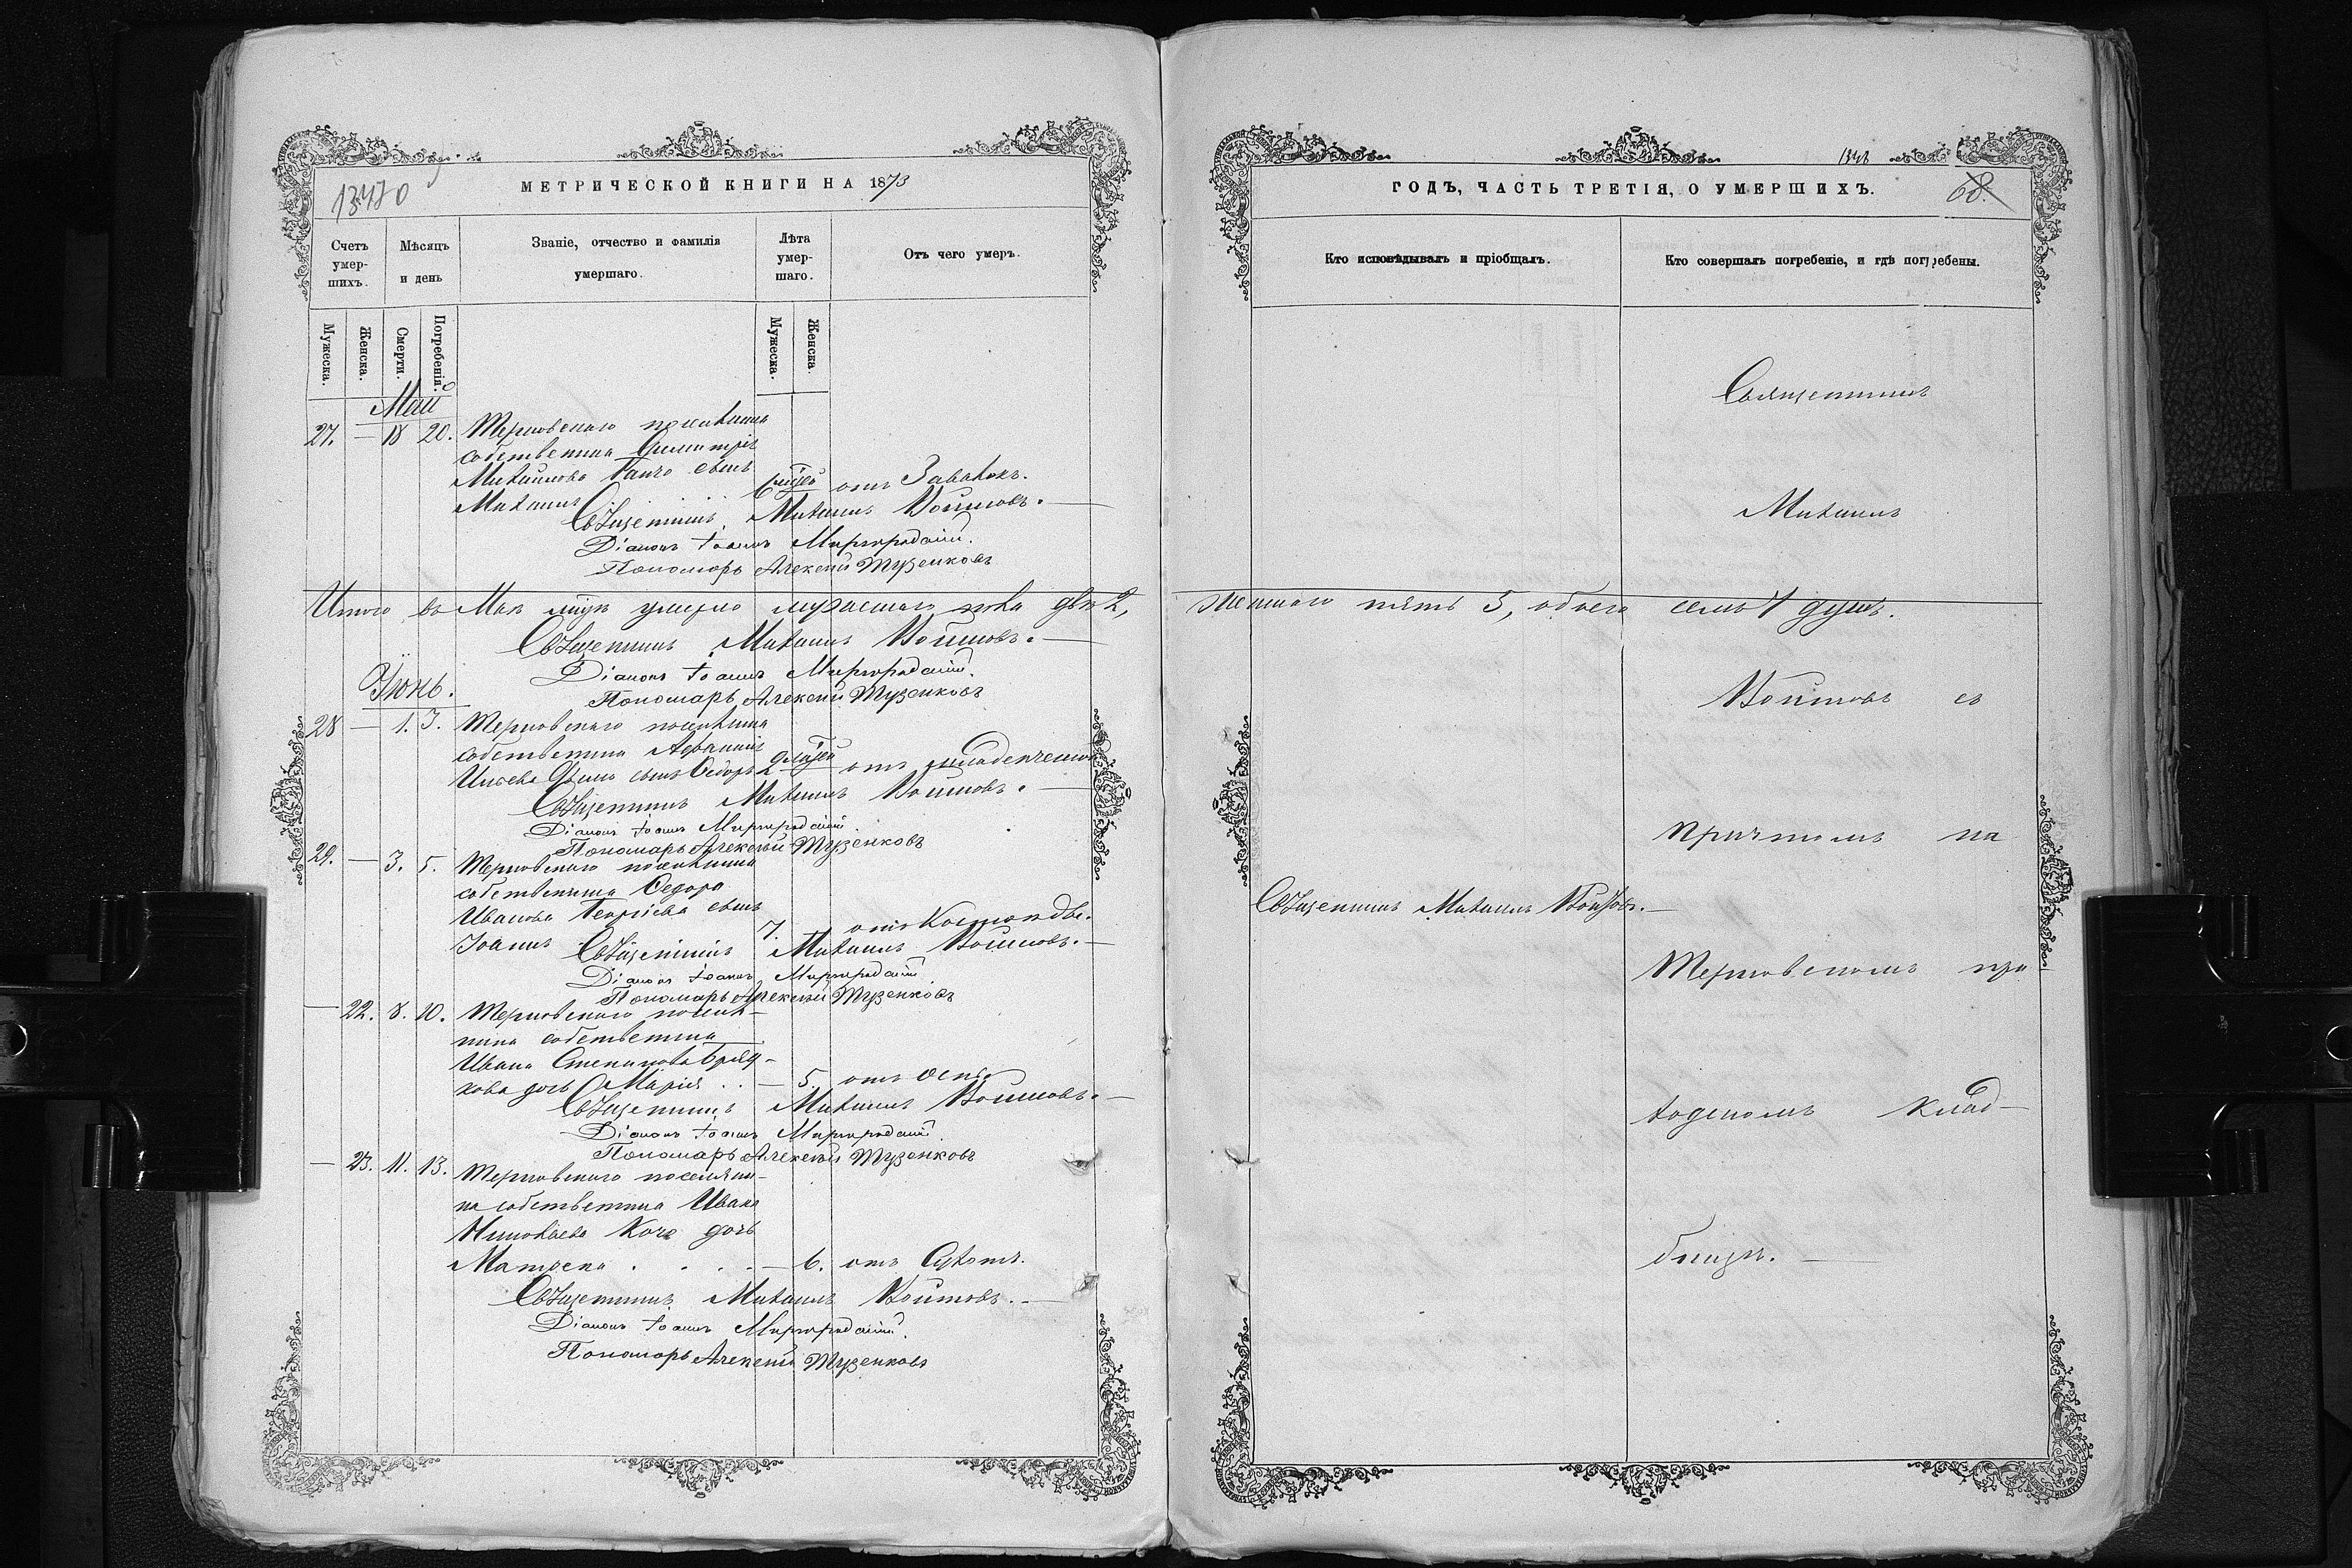 13470
МЕТРИЧЕСКОЙ КНИГИ НА 1873
Счетъ умер-шихъ.
Мѣсяцъ и день
Званіе, отчество и фамилія умершаго.
Лѣта умер-шаго.
Отъ чего умеръ.
Мужеска.
Женска.
Смерти.
Погребенія.
Мужеска.
Женска.
Май
27. — 18 20. Терновскаго поселянина
собственника Димитрія
Михайлова сынъ
Михаилъ 6 отъ
Священникъ Михаилъ Войтовъ.
Діаконъ Іоаннъ Миргородскій.
Пономарь Алексѣй Тузенковъ
Итого въ Маѣ умерло мужескаго пола два 2,
Священникъ Михаилъ Войтовъ.
Діаконъ Іоаннъ Миргородскій.
Пономарь Алексѣй Тузенковъ
Іюнь.
28 — 1. 3. Терновскаго поселянина
собственника Аѳанасія
сынъ Ѳедоръ 2 отъ младенческой
Священникъ Михаилъ Войтовъ.
Діаконъ Іоаннъ Миргородскій
Пономарь Алексѣй Тузенковъ
29. — 3. 5. Терновскаго поселянина
собственника Ѳедора
Иванова Георгіева сынъ
Іоаннъ 7. отъ
Священникъ Михаилъ Войтовъ.
Діаконъ Іоаннъ Миргородскій
Пономарь Алексѣй Тузенковъ
— 22. 8. 10. Терновскаго поселя-
нина собственника
Ивана Степанова
кова дочь Марія . . — 5. отъ оспы
Священникъ Михаилъ Войтовъ.
Діаконъ Іоаннъ Миргородскій.
Пономарь Алексѣй Тузенковъ
— 23. 11. 13. Терновскаго поселяни-
на собственника Ивана
Николаева Коча дочь
Матрона . . . . — 6. отъ
Священникъ Михаилъ Войтовъ.
Діаконъ Іоаннъ Миргородскій.
Пономарь Алексѣй Тузенковъ
ГОДЪ, ЧАСТЬ ТРЕТІЯ, О УМЕРШИХЪ.
68.
Кто исповѣдывалъ и пріобщалъ.
Кто совершалъ погребеніе, и гдѣ погребены.
Священникъ
Михаилъ
женскаго пять 5, обоего семь 7 душъ.
Войтовъ съ
причтомъ на
Священникъ Михаилъ Войтовъ.
Терновскомъ при
ходскомъ клад-
бищѣ.